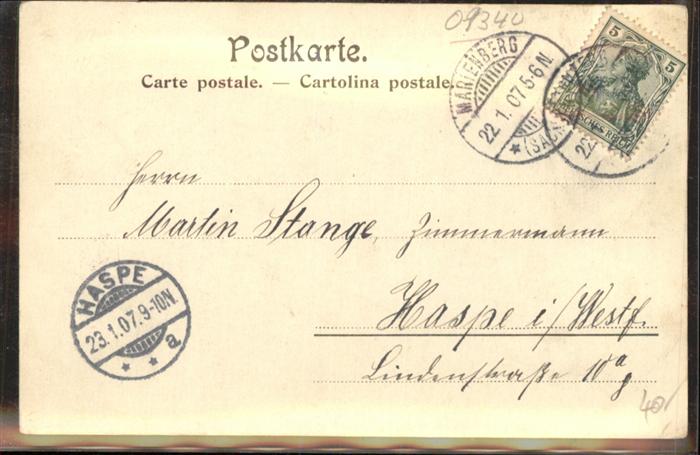 09340
Postkarte.
Carte postale. — Cartolina postale.
MARIENBERG
22.1.07.5-6N.
* (SACHSEN)
5 5
DEUTSCHES REICH
Herrn
Martin Stange, Zimmermann
Haspe i/Westf.
Lindenstraße 10a
HASPE
23.1.07.9-10N.
* * a
40